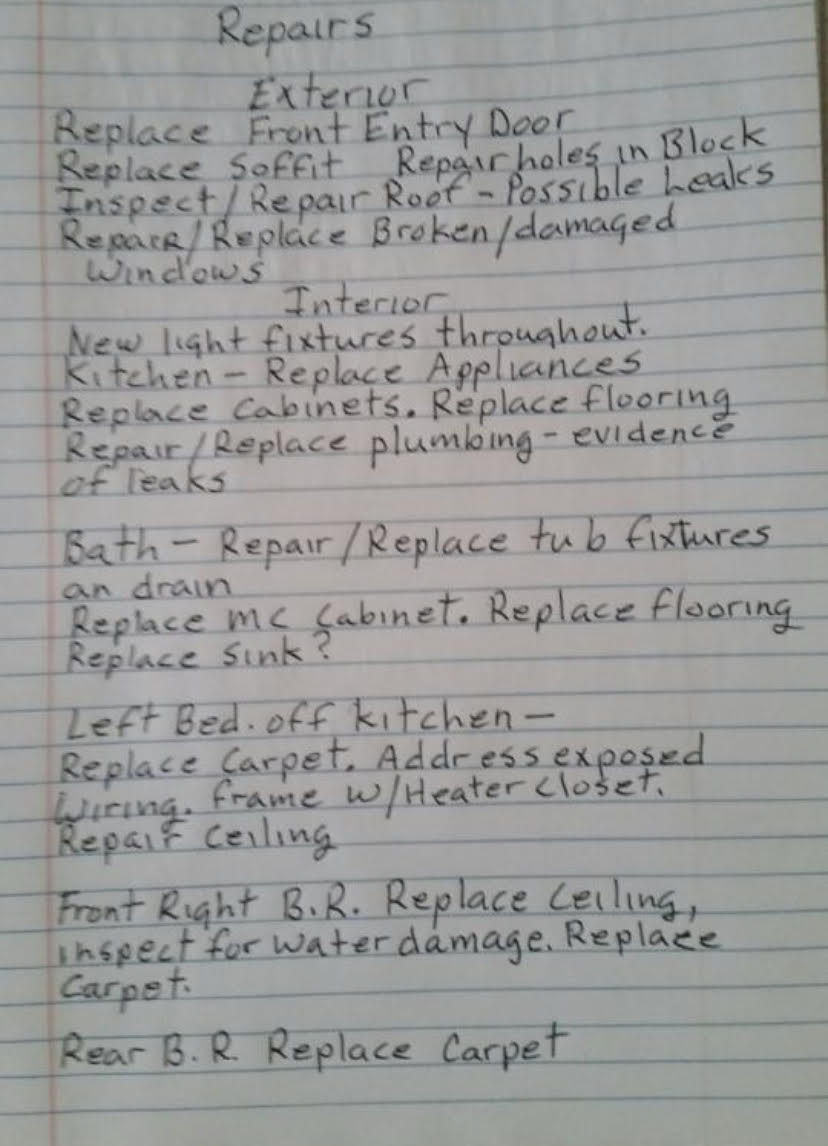 Repairs
Exterior
Replace Front Entry Door
Replace Soffit Repair holes in Block
Inspect/Repair Roof - Possible Leaks
Repair/Replace Broken/damaged
Windows
Interior
New light fixtures throughout.
Kitchen - Replace Appliances
Replace Cabinets. Replace flooring
Repair/Replace plumbing - evidence
of leaks
Bath - Repair/Replace tub fixtures
an drain
Replace mc Cabinet. Replace flooring
Replace Sink?
Left Bed. off kitchen -
Replace Carpet. Address exposed
Wiring. frame w/Heater closet.
Repair Ceiling
Front Right B.R. Replace Ceiling,
inspect for water damage. Replace
Carpet.
Rear B.R. Replace Carpet